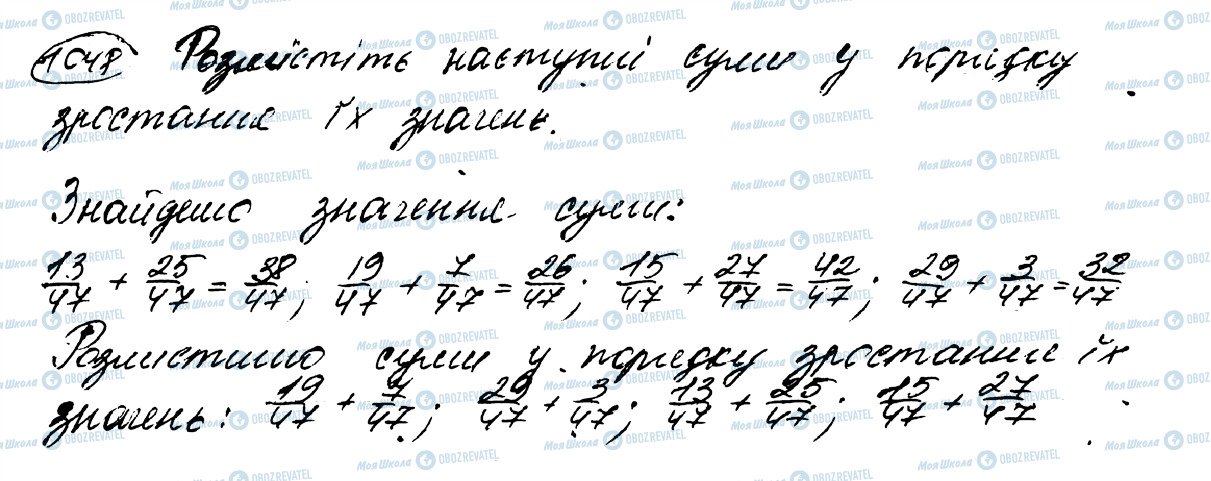 1048 Розмістіть наступні суми у порядку
зростання їх значень.
Знайдемо значення суми:
13/47 + 25/47 = 38/47; 19/47 + 7/47 = 26/47; 15/47 + 27/47 = 42/47; 29/47 + 3/47 = 32/47
Розмистимо суми у порядку зростання їх
значень: 19/47 + 7/47; 29/47 + 3/47; 13/47 + 25/47; 15/47 + 27/47